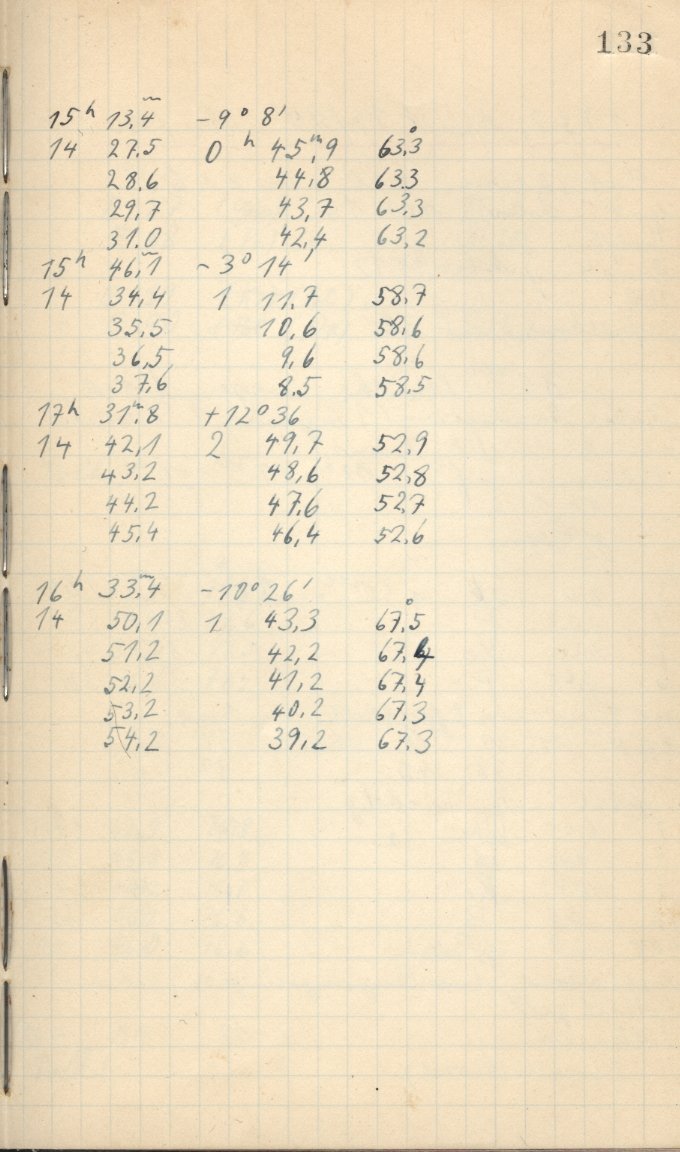 133
15h 13,4m -9° 8'
14 27,5 0h 45m,9 63°,3
28,6 44,8 63,3
29,7 43,7 63,3
31,0 42,4 63,2
15h 46,1m -3° 14'
14 34,4 1 11,7 58,7
35,5 10,6 58,6
36,5 9,6 58,6
37,6 8,5 58,5
17h 31m,8 +12° 36
14 42,1 2 49,7 52,9
43,2 48,6 52,8
44,2 47,6 52,7
45,4 46,4 52,6
16h 33,4m -10° 26'
14 50,1 1 43,3 67°,5
51,2 42,2 67,4
52,2 41,2 67,4
53,2 40,2 67,3
54,2 39,2 67,3